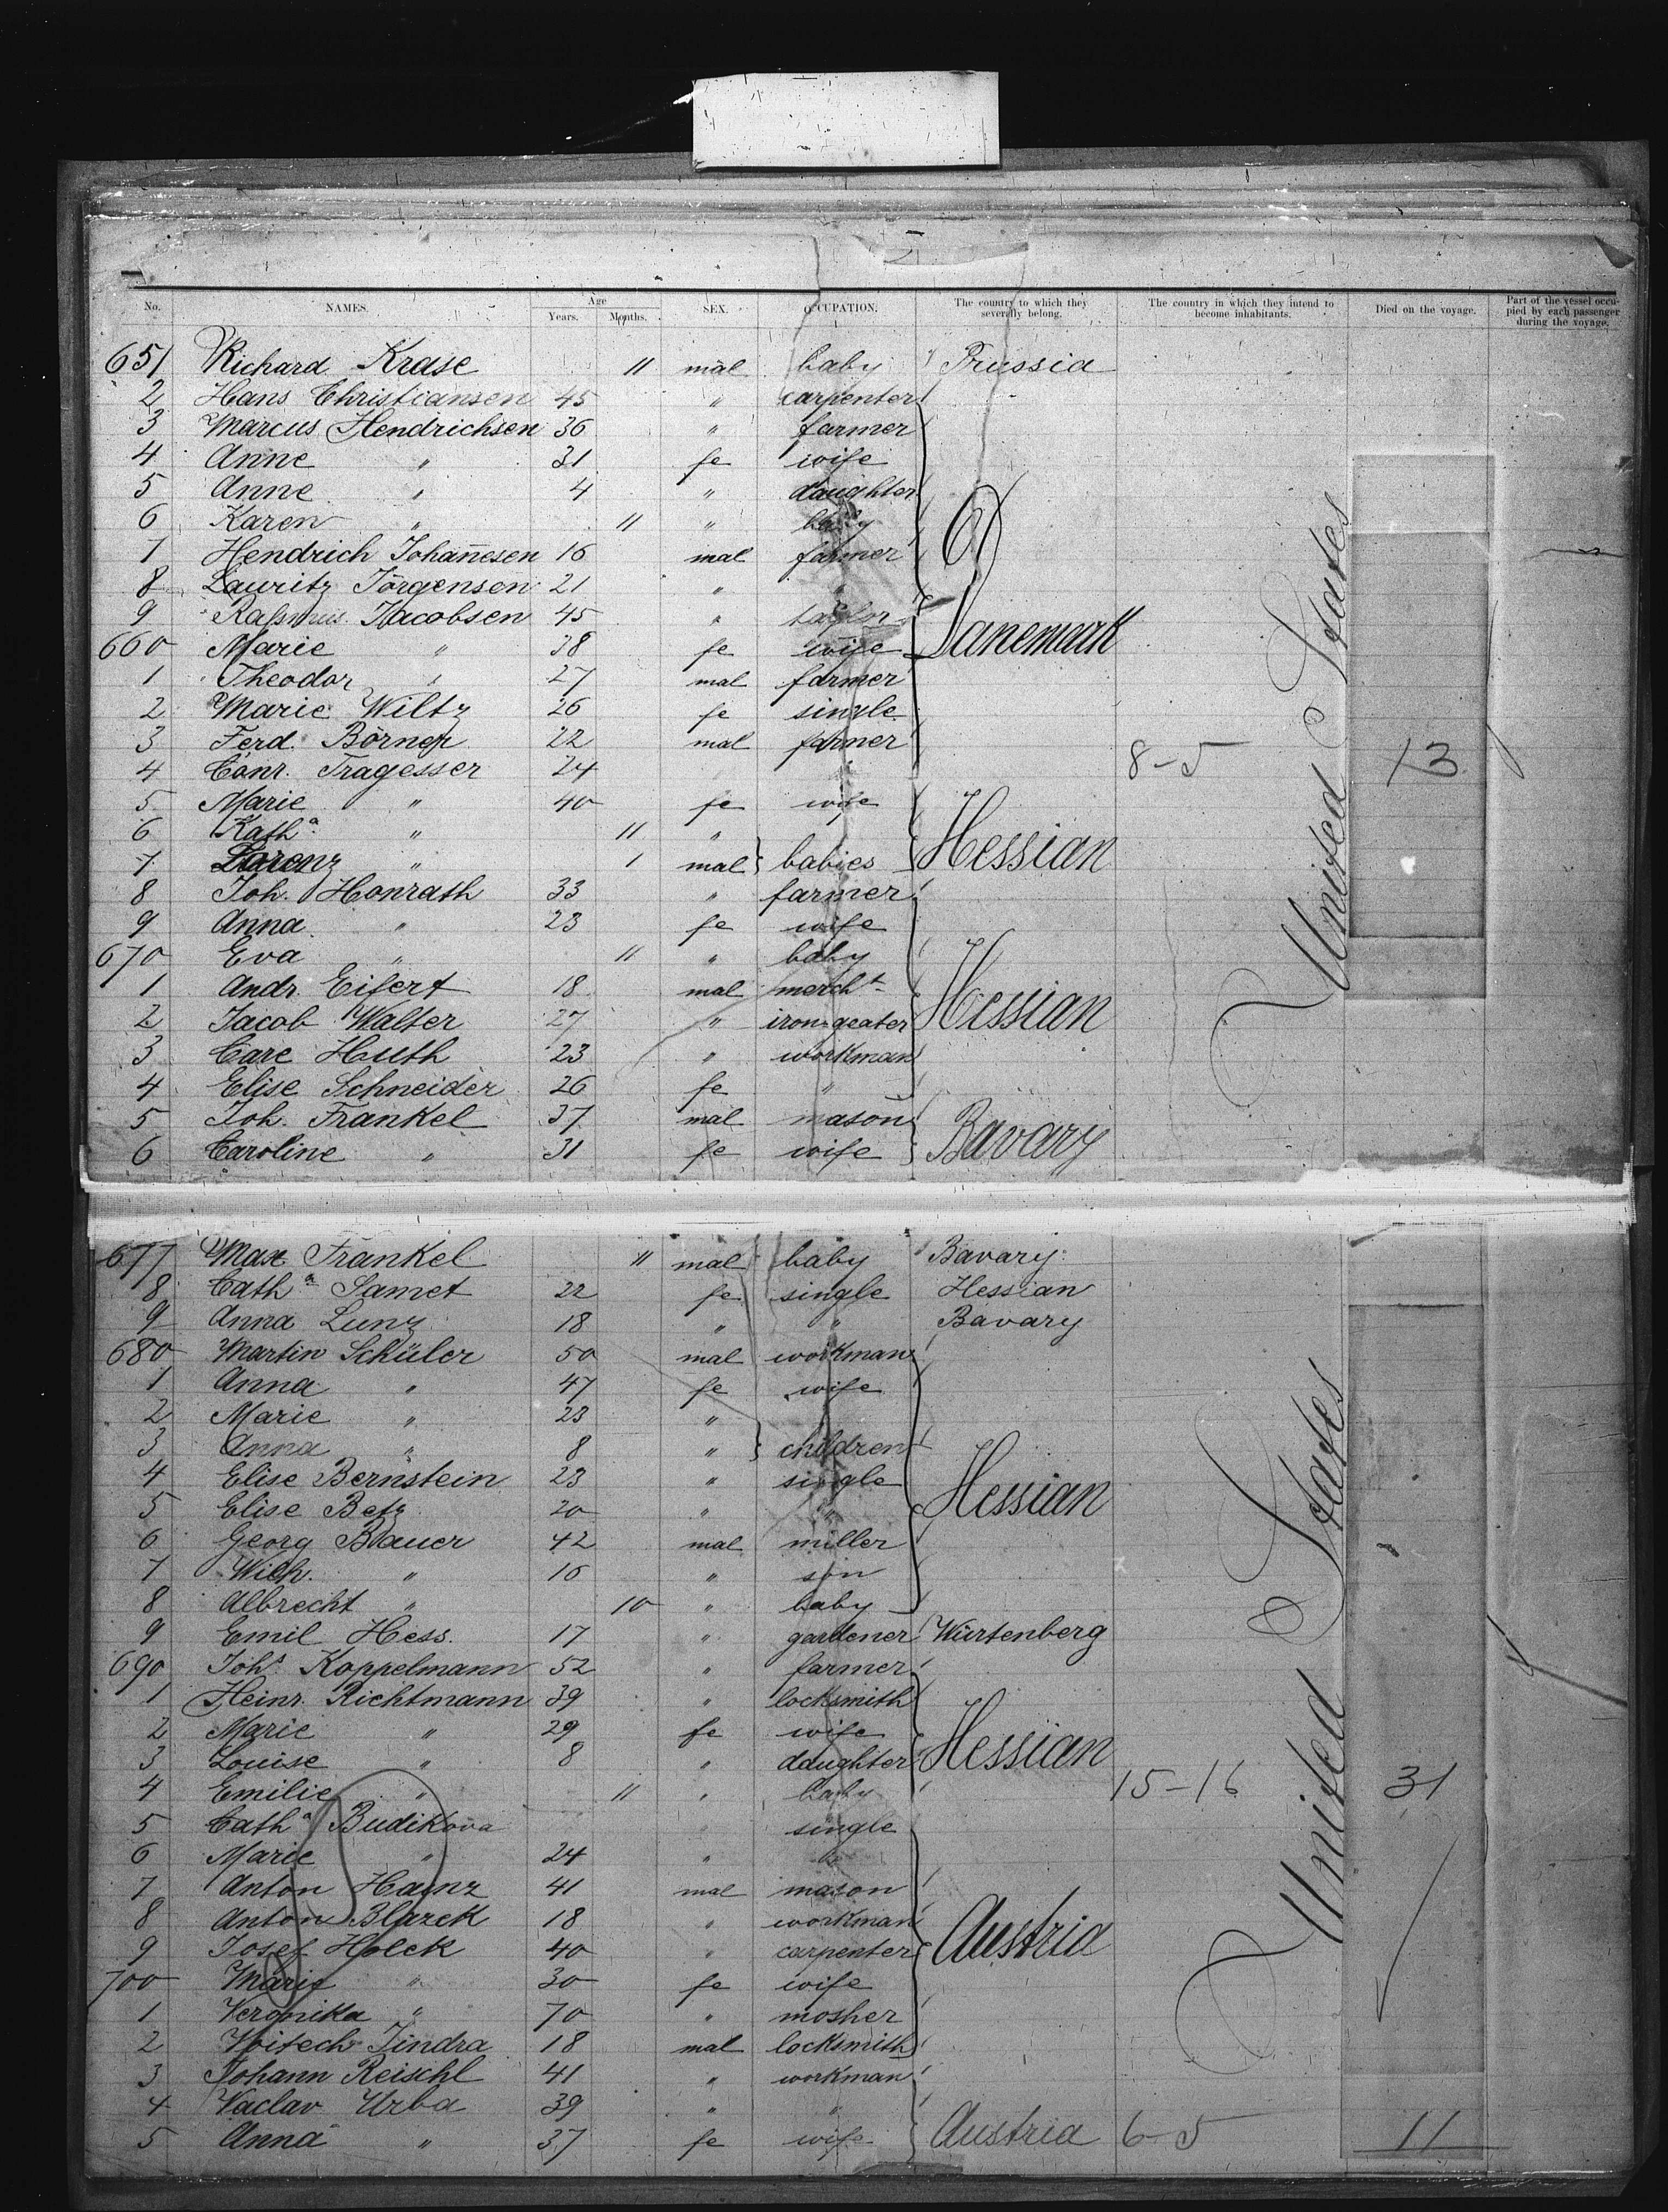 No. NAMES. Age Years. Months. SEX. OCCUPATION. The country to which they severally belong. The country in which they intend to become inhabitants. Died on the voyage. Part of the vessel occupied by each passenger during the voyage.
651 Richard Krase 11 mal baby Prussia
2 Hans Christiansen 45 " carpenter
3 Marcus Hendrichsen 36 " farmer
4 Anne " 31 fe wife
5 Anne " 4 " daughter
6 Karen " 11 " baby
7 Hendrich Johanesen 16 mal farmer
8 Lauritz Jörgensen 21 " "
9 Rasmus Jacobsen 45 " taylor
660 Marie " 38 fe wife Danemark
1 Theodor " 27 mal farmer
2 Marie Wiltz 26 fe single
3 Ferd. Börner 22 mal farmer
4 Conr. Tragesser 24 8-5 13
5 Marie " 40 fe wife
6 Kath.a " 11 "
7 Lorenz " 1 mal babies Hessian
8 Joh. Honrath 33 " farmer
9 Anna " 23 fe wife
670 Eva " 11 " baby
1 Andr. Eifert 18 mal mercht
2 Jacob Walter 27 " iron-geater Hessian
3 Carl Huth 23 " workman
4 Elise Schneider 26 fe "
5 Joh. Frankel 37 mal mason
6 Caroline " 31 fe wife Bavary
United States
677 Max Frankel 11 mal baby Bavary
8 Catha Samet 22 fe single Hessian
9 Anna Lunz 18 " " Bavary
680 Martin Schüler 50 mal workman
1 Anna " 47 fe wife
2 Marie " 23 "
3 Anna " 8 " children
4 Elise Bernstein 23 " single
5 Elise Betz 20 " " Hessian
6 Georg Bauer 42 mal miller
7 Wilh. " 16 " son
8 Albrecht " 10 " baby
9 Emil Hess. 17 " gardener Würtenberg
690 Johs Koppelmann 52 " farmer
1 Heinr. Richtmann 39 " locksmith
2 Marie " 29 fe wife
3 Louise " 8 " daughter Hessian
4 Emilie " 11 " baby 15-16 31
5 Catha Budikova " single
6 Marie " 24 " "
7 Anton Hainz 41 mal mason
8 Anton Blazek 18 " workman
9 Josef Holek 40 " carpenter Austria
700 Marie " 30 fe wife
1 Veronika " 70 " mosher
2 Voitech Jindra 18 mal locksmith
3 Johann Reischl 41 " workman
4 Vaclav Urba 39 " "
5 Anna " 37 fe wife Austria 6-5 11
United States